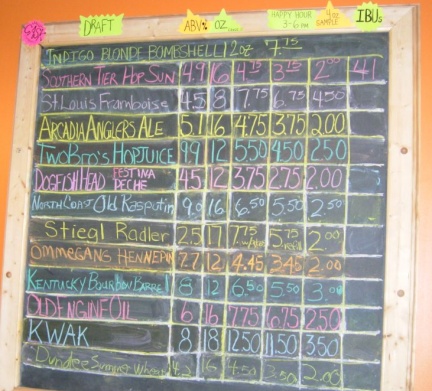 DRAFT ABV% OZ HAPPY HOUR 3-6pm 4oz SAMPLE IBUs
INDIGO BLONDE BOMBSHELL 12oz 7.75
SOUTHERN TIER HOP SUN 4.9 16 3.75 2.00 41
St. Louis Framboise 4.5 8 7.75 6.75 4.50
ARCADIA ANGLERS ALE 5.7 16 4.75 3.75 2.00
TWO BRO'S HOP JUICE 9.9 12 5.50 4.50 2.50
DOGFISH HEAD FESTINA PECHE 4.5 12 3.75 2.75 2.00
NORTH COAST Old Rasputin 9.0 16 6.50 5.50 2.50
Stiegl Radler 2.5 17 7.75 5.75 2.00
OMMEGANG HENNEPIN 7.7 12 4.45 3.45 2.00
KENTUCKY BOURBON BARREL 8 12 6.50 5.50 3.00
OLD ENGINE OIL 6 16 7.75 6.75 2.50
KWAK 8 18 12.50 11.50 3.50
Dundee Summer Wheat 4.2 16 4.50 3.50 2.00